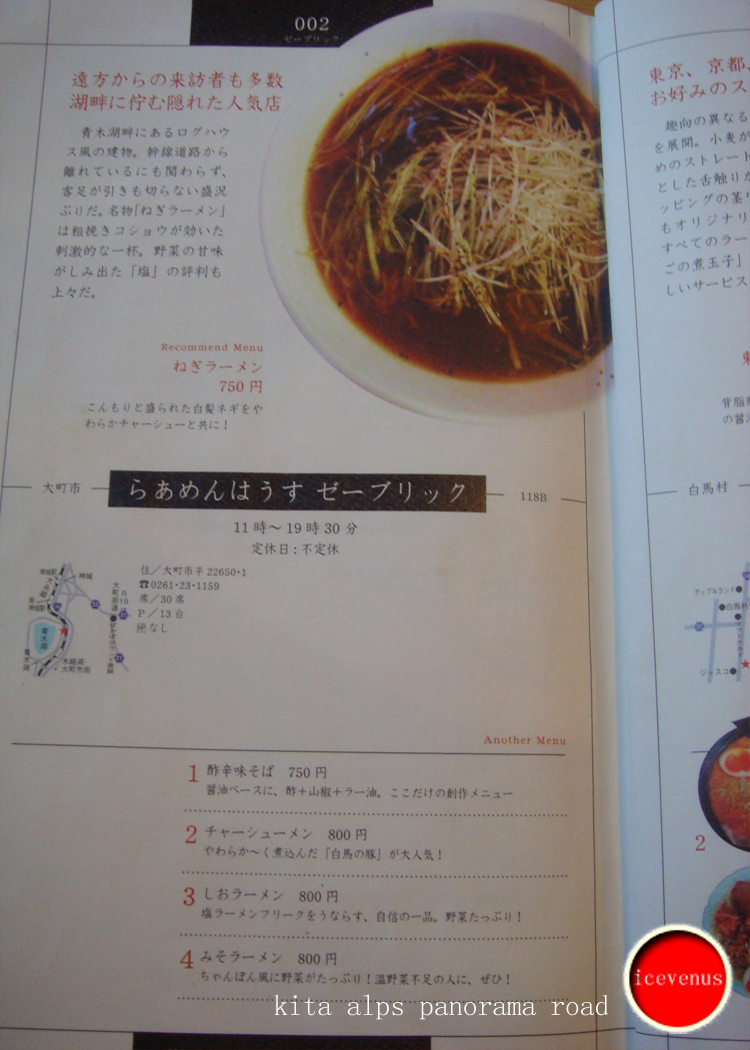 002
ゼーブリック
遠方からの来訪者も多数
湖畔に佇む隠れた人気店
青木湖畔にあるログハウ
ス風の建物。幹線道路から
離れているにも関わらず、
客足が引きも切らない盛況
ぶりだ。名物「ねぎラーメン」
は粗挽きコショウが効いた
刺激的な一杯。野菜の甘味
がしみ出た「塩」の評判も
上々だ。
Recommend Menu
ねぎラーメン
750 円
こんもりと盛られた白髪ネギをや
わらかチャーシューと共に!
大町市
らあめんはうす ゼーブリック
118B
11時〜19時30分
定休日:不定休
住/大町市平22650・1
☎0261・23・1159
席/30席
P/13台
青木湖
木崎湖・
大町市街
Another Menu
1 酢辛味そば 750円
醤油ベースに、酢+山椒+ラー油。ここだけの創作メニュー
2 チャーシューメン 800円
やわらか〜く煮込んだ「白馬の豚」が大人気!
3 しおラーメン 800円
塩ラーメンフリークをうならす、自信の一品。野菜たっぷり!
4 みそラーメン 800円
ちゃんぽん風に野菜がたっぷり!温野菜不足の人に、ぜひ!
東京、京都、
お好みのス
趣向の異なる
を展開。小麦が
めのストレート
とした舌触りが
ッピングの茎ワ
もオリジナリ
すべてのラー
ごの煮玉子」
しいサービス
背脂
の醤
白馬村
アップルランド
白馬村
ジャスコ
2
kita alps panorama road
icevenus